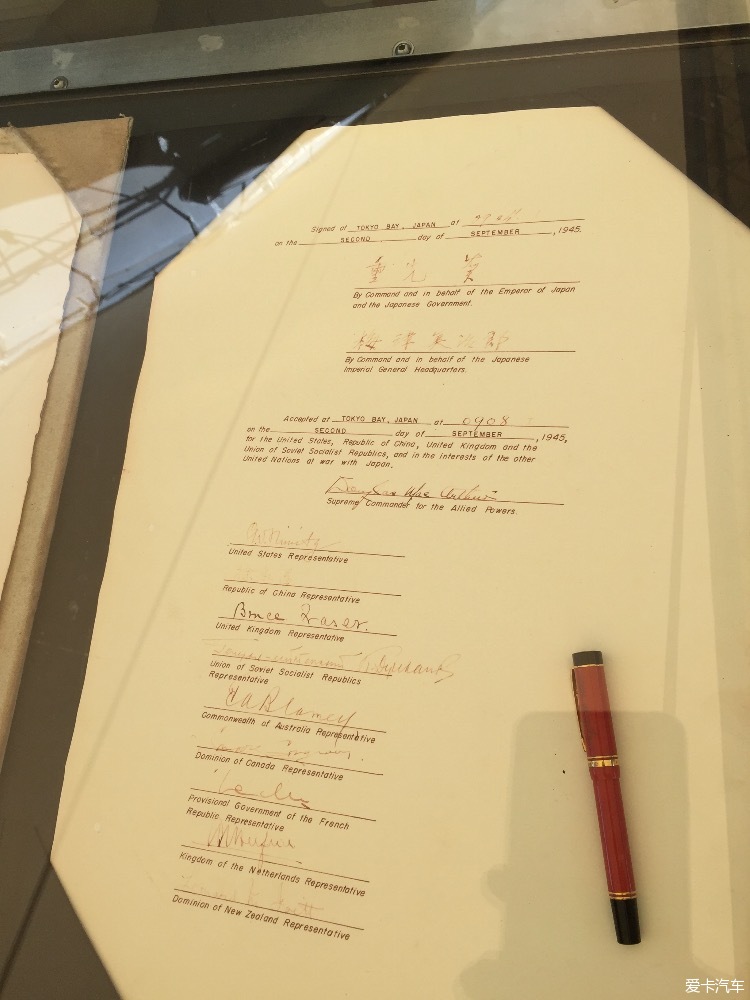 Signed at TOKYO BAY, JAPAN at
on the SECOND day of SEPTEMBER, 1945.
重光 葵
By Command and in behalf of the Emperor of Japan
and the Japanese Government.
梅津美治郎
By Command and in behalf of the Japanese
Imperial General Headquarters.
Accepted at TOKYO BAY, JAPAN at 0908
on the SECOND day of SEPTEMBER, 1945,
for the United States, Republic of China, United Kingdom and the
Union of Soviet Socialist Republics, and in the interests of the other
United Nations at war with Japan.
Douglas MacArthur
Supreme Commander for the Allied Powers.
C.W. Nimitz
United States Representative
Republic of China Representative
Bruce Fraser.
United Kingdom Representative
Union of Soviet Socialist Republics
Representative
T A Blamey
Commonwealth of Australia Representative
Dominion of Canada Representative
Provisional Government of the French
Republic Representative
Kingdom of the Netherlands Representative
Dominion of New Zealand Representative
爱卡汽车